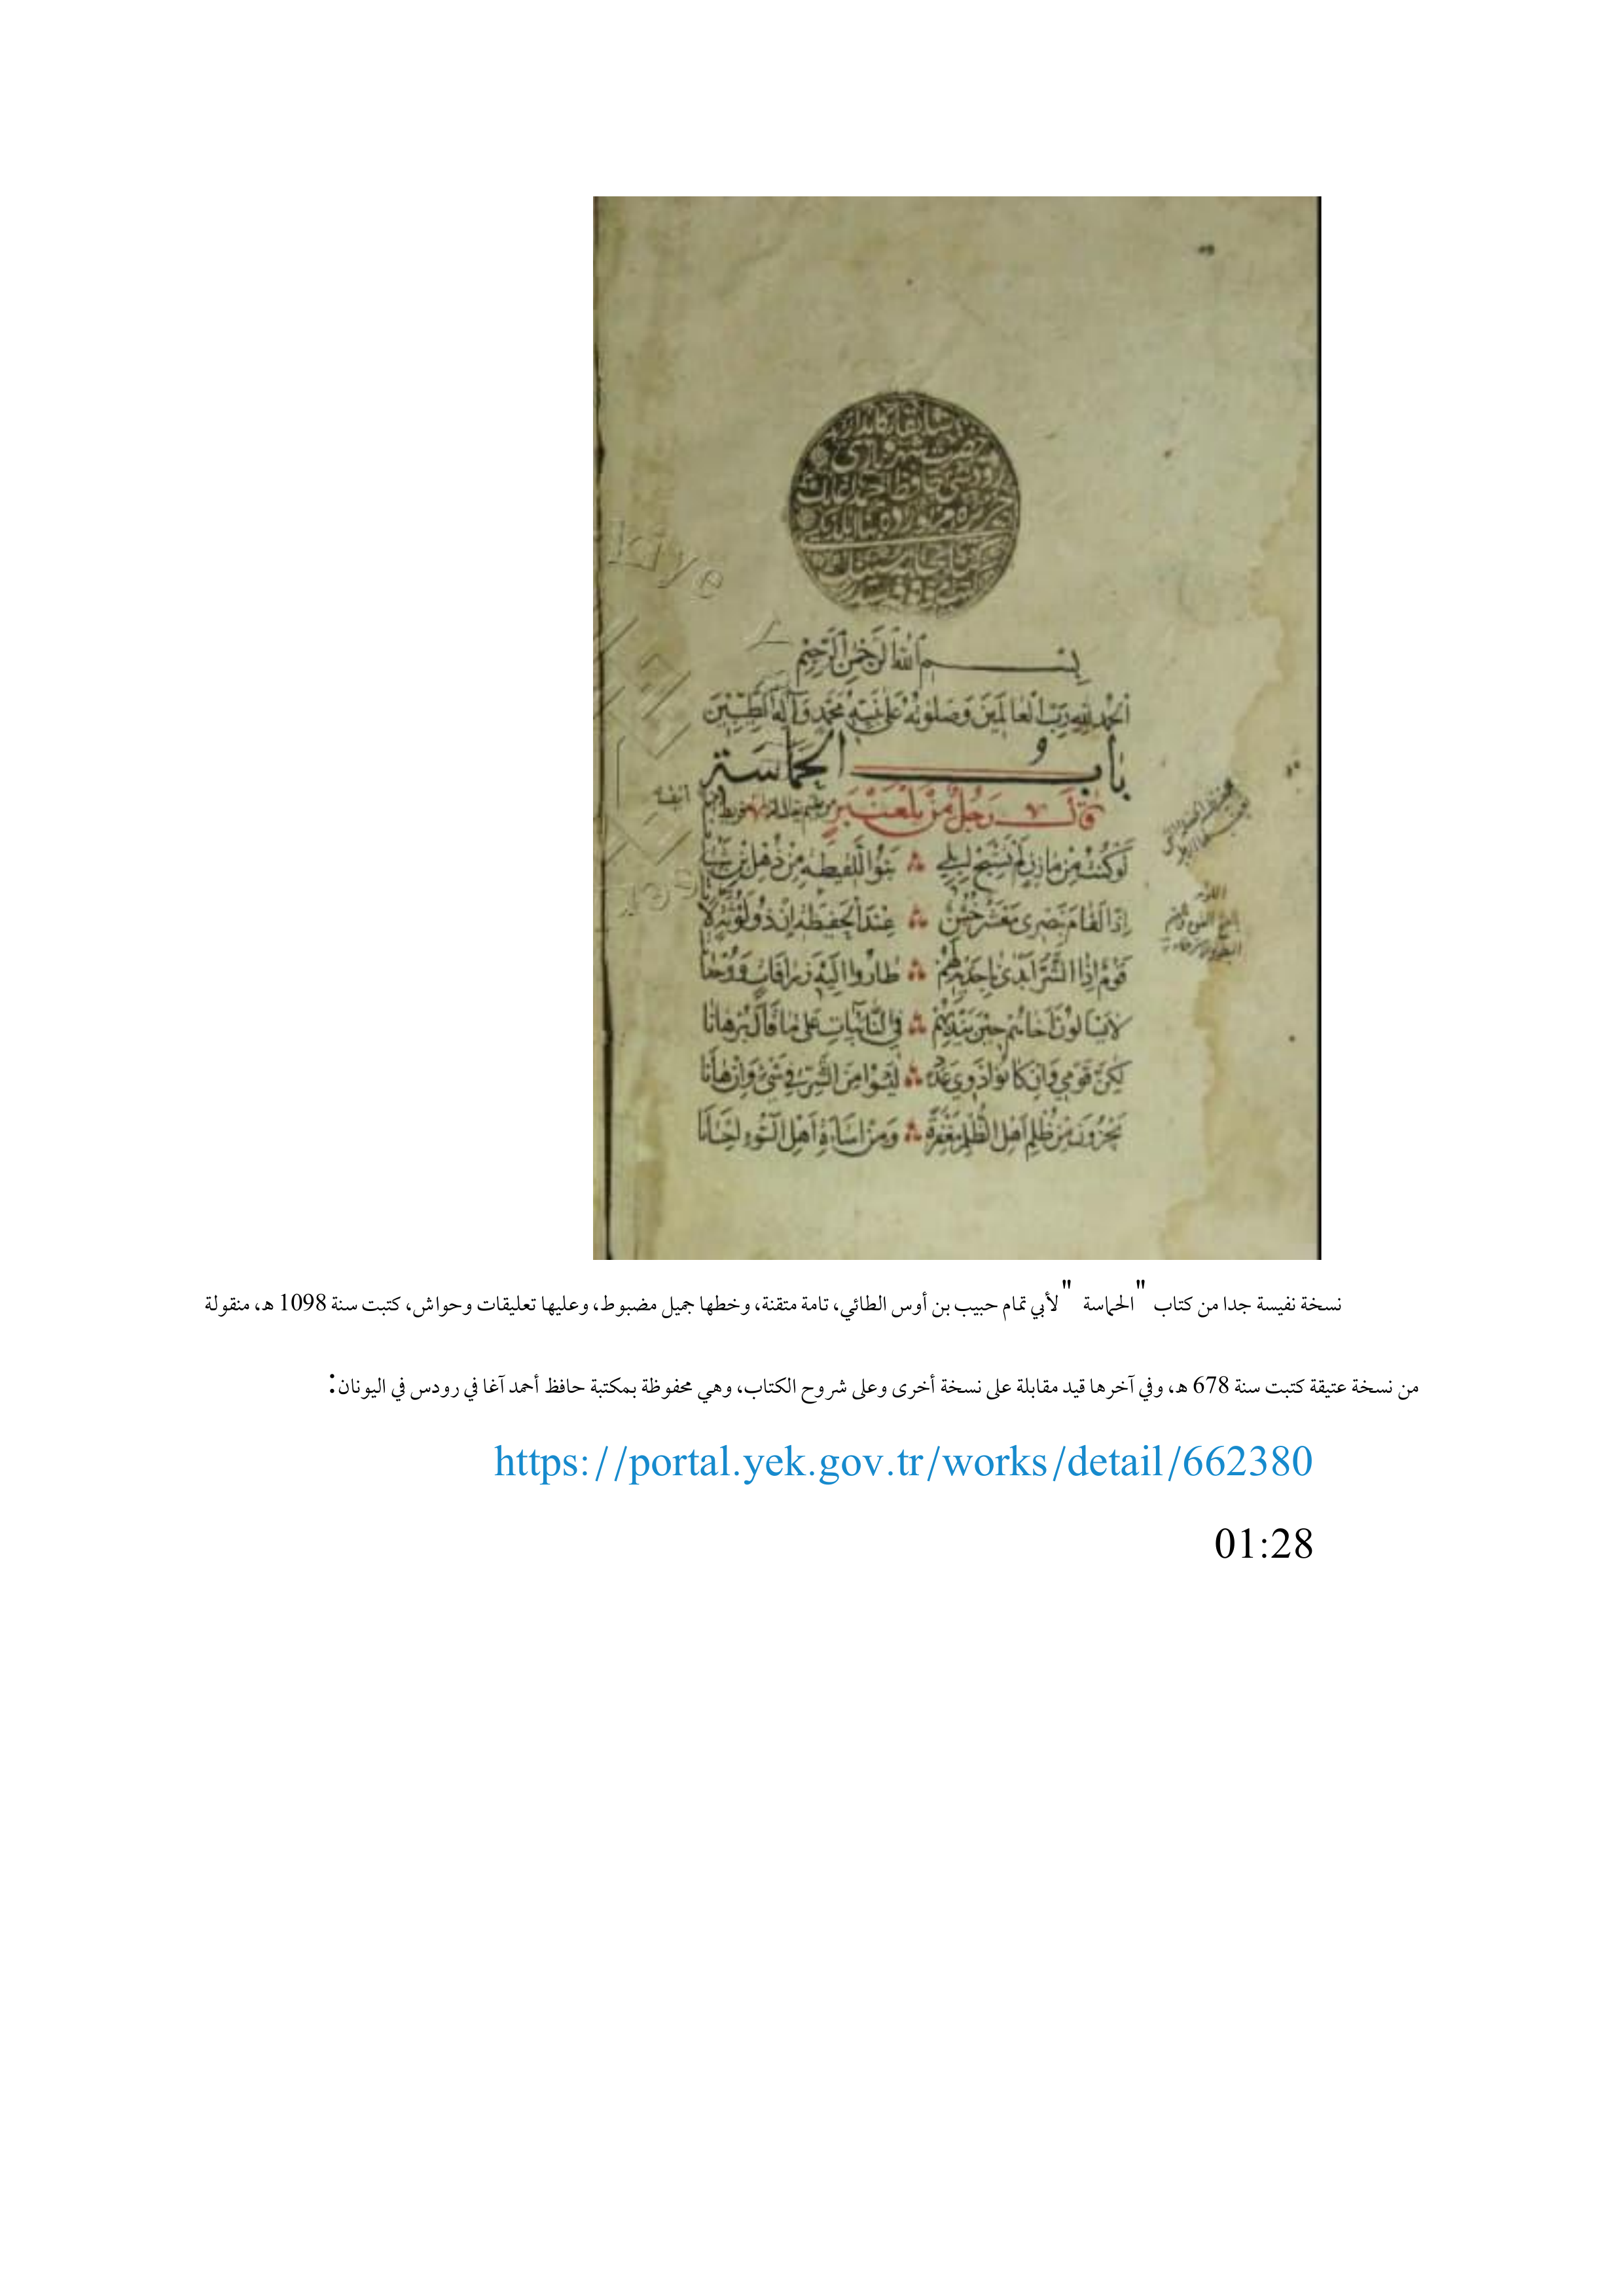 بسم الله الرحمن الرحيم
الحمد لله رب العالمين وصلوته على نبيه محمد وآله الطيبين
باب الحماسة
قال رجل من بلعنبر
لو كنت من مازن لم تستبح ابلي بنو اللقيطة من ذهل بن شيبانا
اذا لقام بنصري معشر خشن عند الحفيظة ان ذو لوثة لانا
قوم اذا الشر ابدى ناجذيه لهم طاروا اليه زرافات ووحدانا
لا يسالون اخاهم حين يندبهم في النائبات على ما قال برهانا
لكن قومي وان كانوا ذوي عدد ليسوا من الشر في شيء وان هانا
يجزون من ظلم اهل الظلم مغفرة ومن اساءة اهل السوء احسانا
نسخة نفيسة جدا من كتاب "الحماسة " لأبي تمام حبيب بن أوس الطائي، تامة متقنة، وخطها جميل مضبوط، وعليها تعليقات وحواش، كتبت سنة 1098 هـ، منقولة
من نسخة عتيقة كتبت سنة 678 هـ، وفي آخرها قيد مقابلة على نسخة أخرى وعلى شروح الكتاب، وهي محفوظة بمكتبة حافظ أحمد آغا في رودس في اليونان:
https://portal.yek.gov.tr/works/detail/662380
01:28